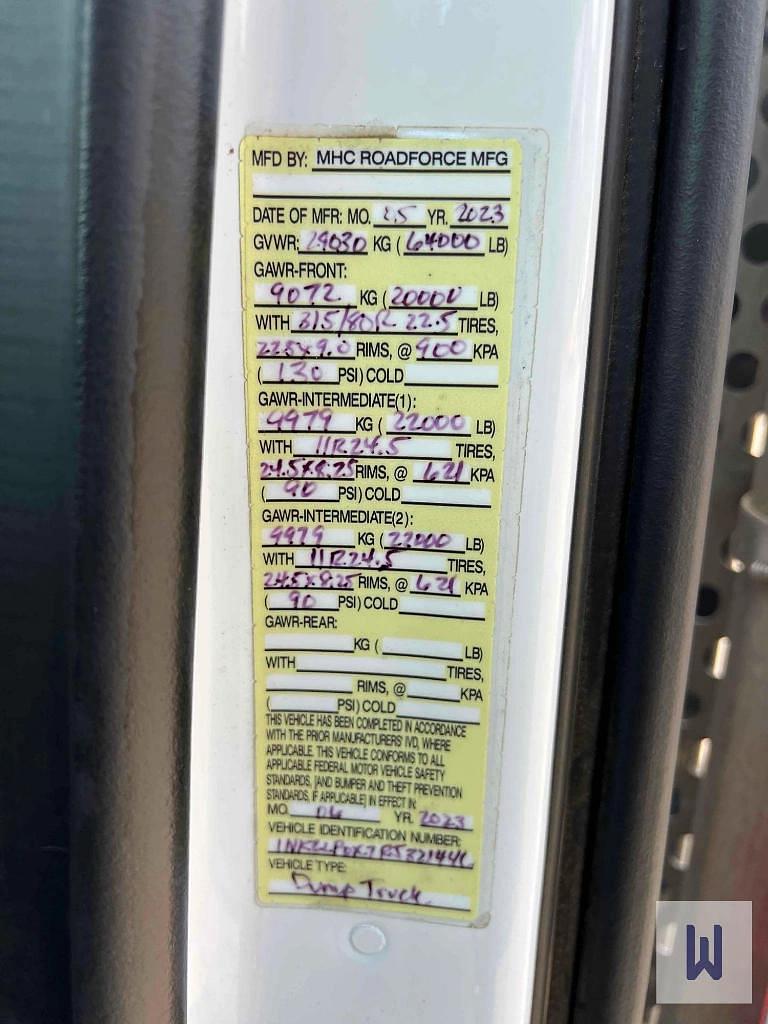 MFD BY: MHC ROADFORCE MFG
DATE OF MFR: MO. YR. 2023
GVWR: 29030 KG ( 64000 LB)
GAWR-FRONT:
9072 KG ( 20000 LB)
WITH 315/80R 22.5 TIRES,
22.5x9.0 RIMS, @ 900 KPA
( 130 PSI) COLD
GAWR-INTERMEDIATE(1):
9979 KG ( 22000 LB)
WITH 11R24.5 TIRES,
24.5x8.25 RIMS, @ 621 KPA
( 90 PSI) COLD
GAWR-INTERMEDIATE(2):
9979 KG ( 22000 LB)
WITH 11R24.5 TIRES,
24.5x8.25 RIMS, @ 621 KPA
( 90 PSI) COLD
GAWR-REAR:
KG ( LB)
WITH TIRES,
RIMS, @ KPA
( PSI) COLD
THIS VEHICLE HAS BEEN COMPLETED IN ACCORDANCE
WITH THE PRIOR MANUFACTURERS' IVD, WHERE
APPLICABLE. THIS VEHICLE CONFORMS TO ALL
APPLICABLE FEDERAL MOTOR VEHICLE SAFETY
STANDARDS, [AND BUMPER AND THEFT PREVENTION
STANDARDS, IF APPLICABLE] IN EFFECT IN:
MO. 06 YR. 2023
VEHICLE IDENTIFICATION NUMBER:
VEHICLE TYPE:
Dump Truck
W